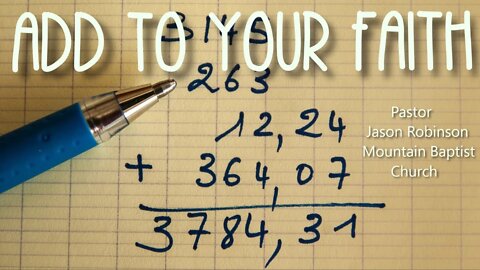 ADD TO YOUR FAITH
3145
263
12,24
+ 364,07
3784,31
Pastor
Jason Robinson
Mountain Baptist
Church